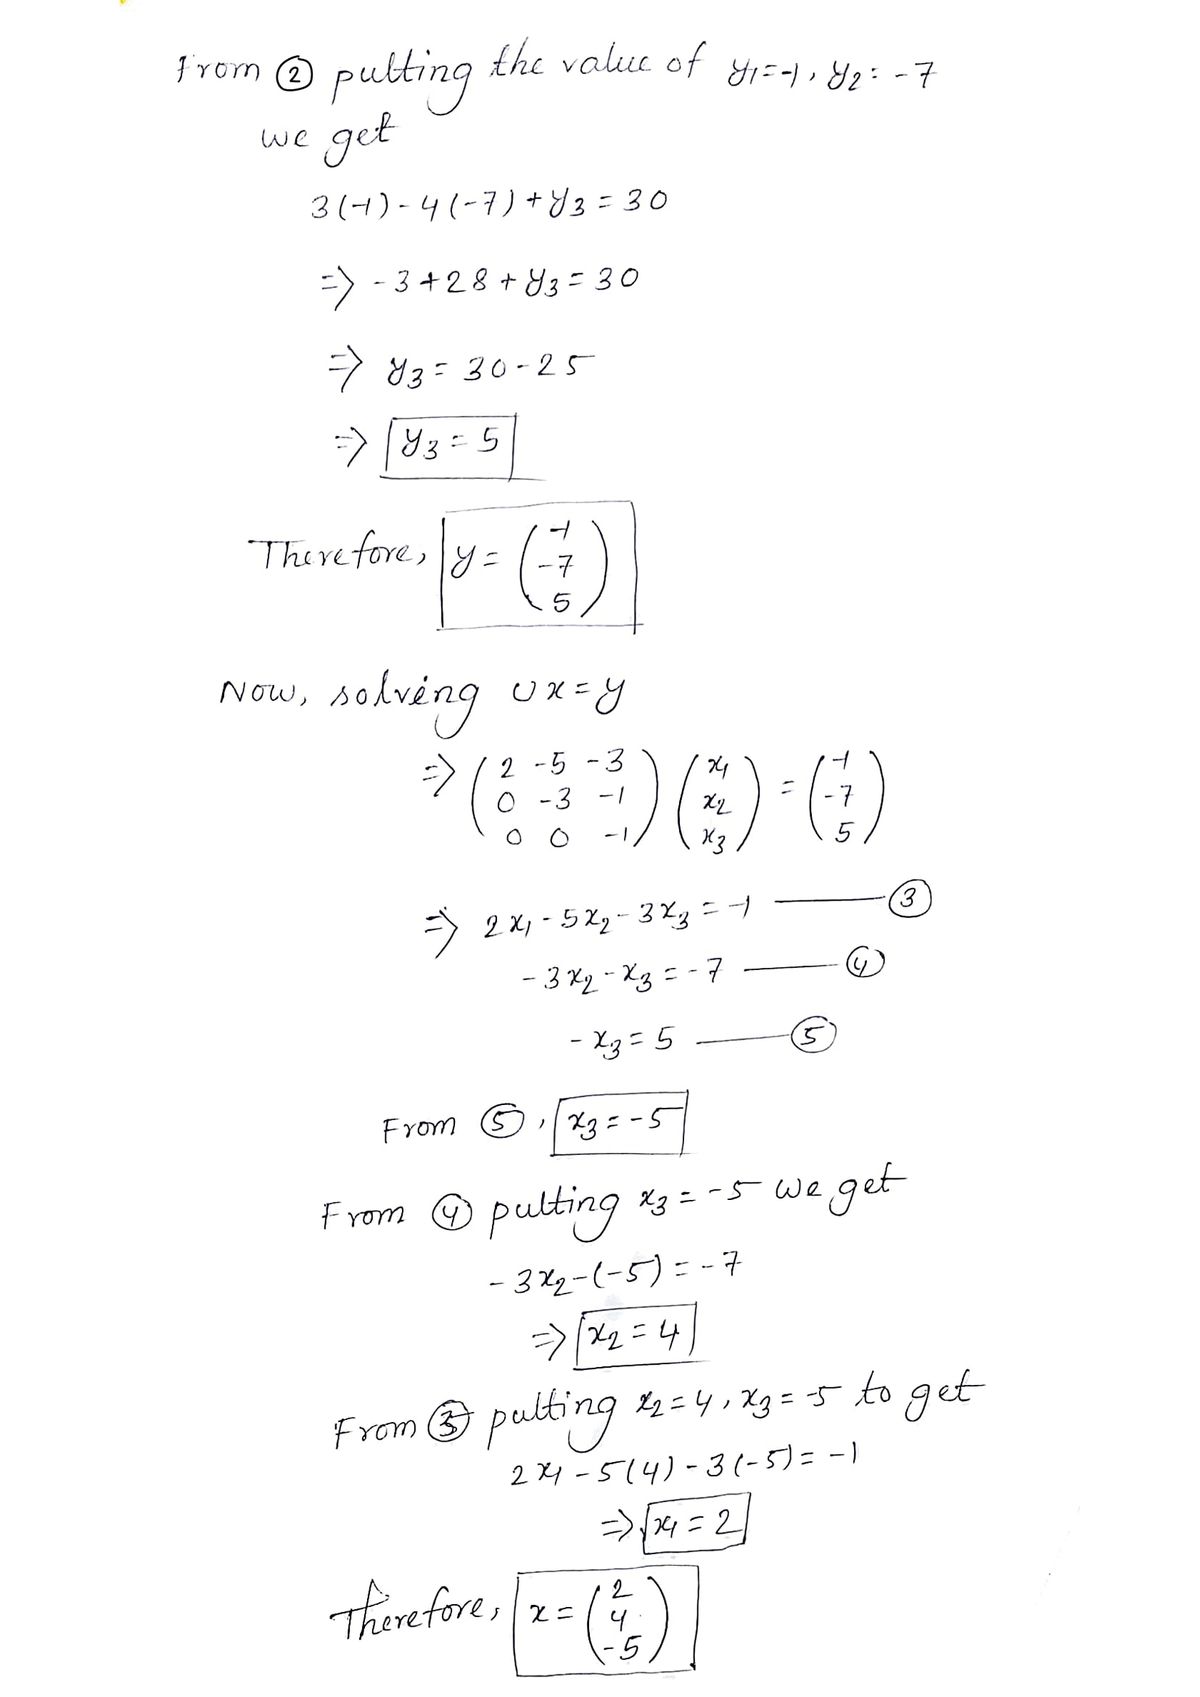 From ② putting the value of y₁=-1, y₂=-7
we get
3(-1)-4(-7)+y₃=30
=> -3+28+y₃=30
=> y₃=30-25
=> y₃=5
Therefore, y= (-1
-7
5)
Now, solving Ux=y
=> (2 -5 -3
0 -3 -1
0 0 -1) (x₁
x₂
x₃) = (-1
-7
5)
=> 2x₁-5x₂-3x₃=-1 —— ③
-3x₂-x₃=-7 —— ④
-x₃=5 —— ⑤
From ⑤, x₃=-5
From ④ putting x₃=-5 we get
-3x₂-(-5)=-7
=> x₂=4
From ③ putting x₂=4, x₃=-5 to get
2x₁-5(4)-3(-5)=-1
=> x₁=2
Therefore, x= (2
4
-5)